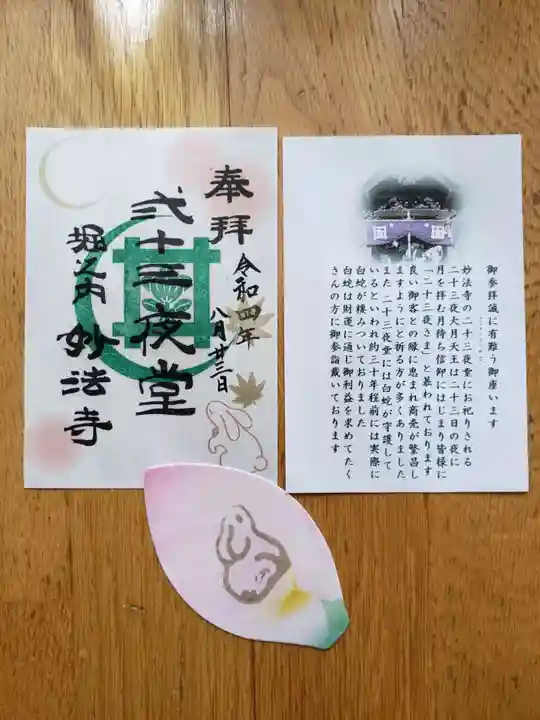 奉拝
令和四年
八月廿三日
弐十三夜堂
堀之内 妙法寺
御参拝誠に有難う御座います
妙法寺の二十三夜堂にお祀りされる
二十三夜大月天王は二十三日の夜に
月を拝む月待ち信仰にはじまり皆様に
「二十三夜さま」と慕われております
良い御客との縁に恵まれ商売が繁昌し
ますようにと祈る方が多くありました
また 二十三夜堂には白蛇が守護して
いるといわれ約三十年程前には実際に
白蛇が棲みついておりました
白蛇は財運に通じ御利益を求めてたく
さんの方に御参詣戴いております